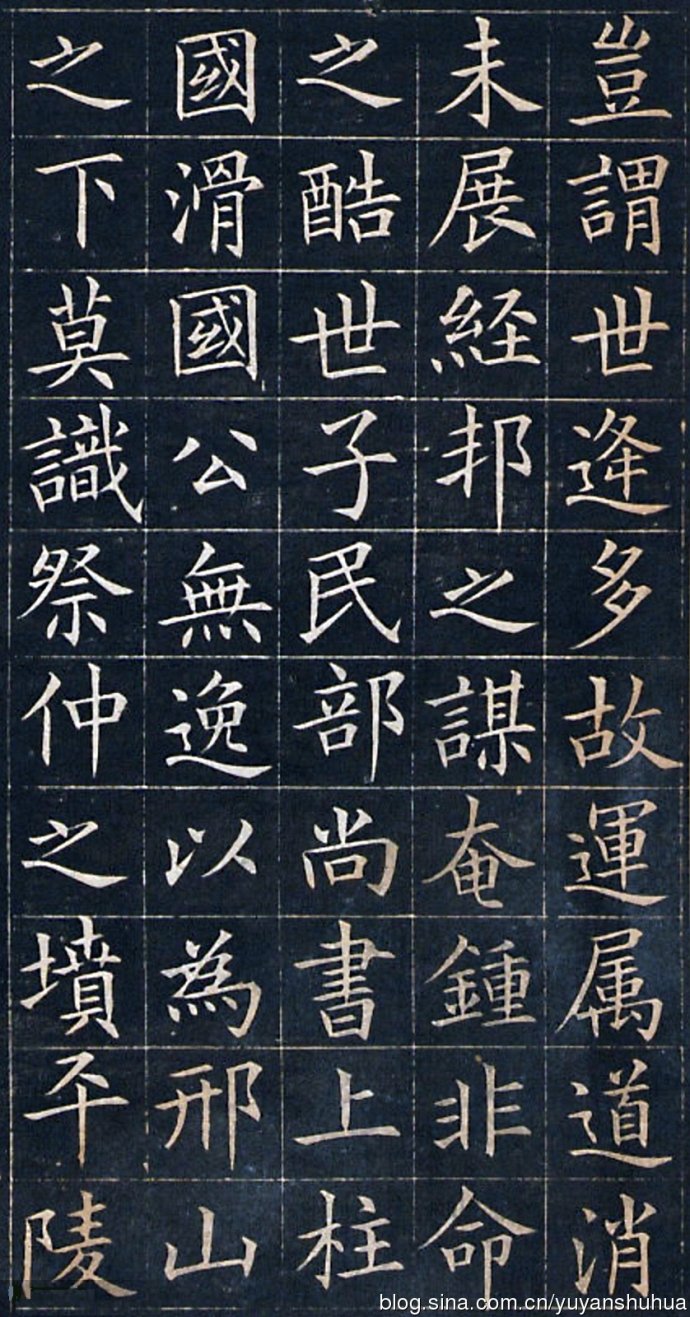 豈謂世逢多故運属道消
未展経邦之謀奄鍾非命
之酷世子民部尚書上柱
國滑國公無逸以為邢山
之下莫識祭仲之墳平陵
blog.sina.com.cn/yuyanshuhua